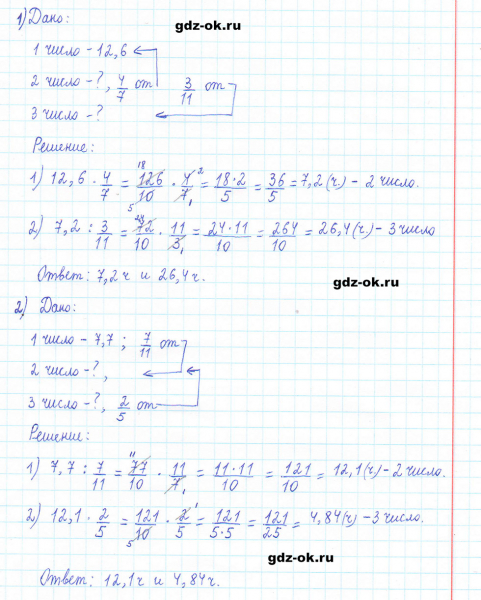 1) Дано:
gdz-ok.ru
1 число - 12,6
2 число - ?, 4/7 от 3/11 от
3 число - ?
Решение:
1) 12,6 · 4/7 = 126/10 · 4/7 = 18·2/5 = 36/5 = 7,2 (ч) - 2 число.
2) 7,2 : 3/11 = 72/10 · 11/3 = 24·11/10 = 264/10 = 26,4 (ч) - 3 число
Ответ: 7,2ч и 26,4ч.
gdz-ok.ru
2) Дано:
1 число - 7,7 ; 7/11 от
2 число - ?,
3 число - ?, 2/5 от
Решение:
1) 7,7 : 7/11 = 77/10 · 11/7 = 11·11/10 = 121/10 = 12,1 (ч) - 2 число.
2) 12,1 · 2/5 = 121/10 · 2/5 = 121/5·5 = 121/25 = 4,84 (ч) - 3 число.
gdz-ok.ru
Ответ: 12,1ч и 4,84ч.